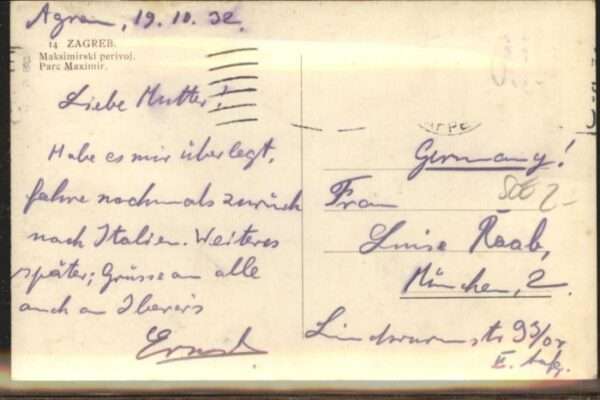 Agram, 19.10.32.
14 ZAGREB.
Maksimirski perivoj.
Parc Maximir.
Liebe Mutter!
Habe es mir überlegt,
fahre nochmals zurück
nach Italien. Weiteres
später; Grüsse an alle
auch an
Ernst
Germany!
Frau
Luise Raab,
München, 2.
Lindwurmstr 93/
II.